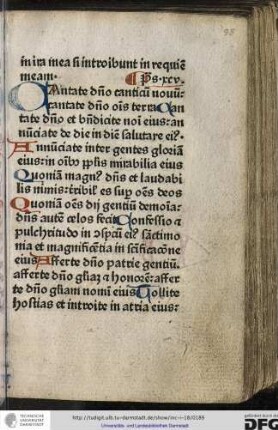 in ira mea si introibunt in requiẽ
meam· Ps·xcv·
Cantate dño canticũ nouũ:
cantate dño oĩs terra Can
tate dño et bñdicite noĩ eius: an
nũciate de die in diẽ salutare eiꝰ·
Annũciate inter gentes gloriã
eius: in oĩbꝰ ppl̃is mirabilia eius
Quoniã magnꝰ dñs et laudabi
lis nimis: tribil̓ es sup oẽs deos
Quoniã oẽs dij gentiũ demoĩa:
dñs autẽ celos fecit Confessio ⁊
pulchritudo in ↄspcũ eiꝰ: sãctimo
nia et magnificẽtia in sc̃ificacõne
eius Afferte dño patrie gentiũ.
afferte dño gliã ⁊ honorẽ: affer
te dño gliam nomĩ eius Tollite
hostias et introite in atria eius:
98
http://tudigit.ulb.tu-darmstadt.de/show/inc-i-18/0186
Universitäts- und Landesbibliothek Darmstadt
TECHNISCHE
UNIVERSITÄT
DARMSTADT
gefördert durch die
DFG